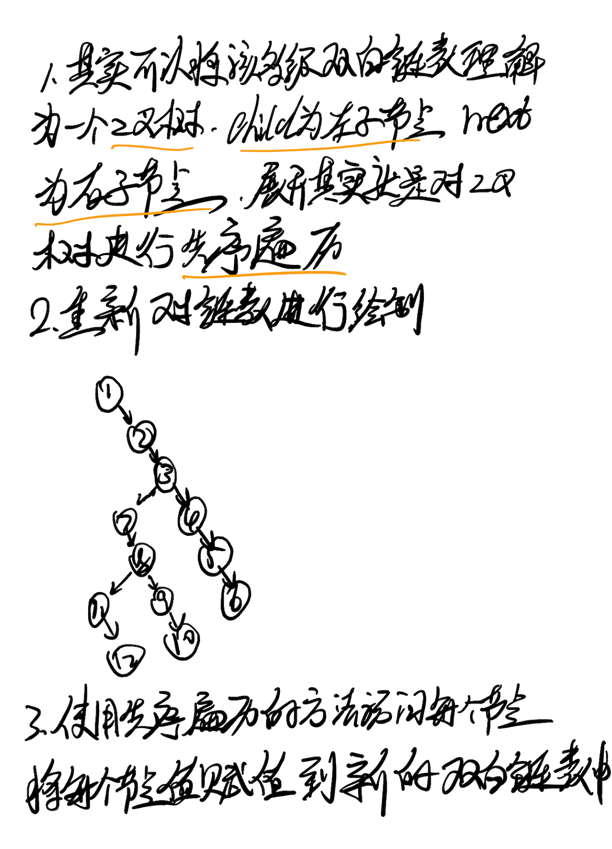 1、其实可以将该多级双向链表理解
为一个二叉树. child为左子节点, next
为右子节点, 展开其实就是对二叉
树进行先序遍历
2、重新对链表进行绘制
1
2
3
7
8
9
11
10
12
5
6
3、使用先序遍历的方法访问每个节点
将每个节点值赋值到新的双向链表中